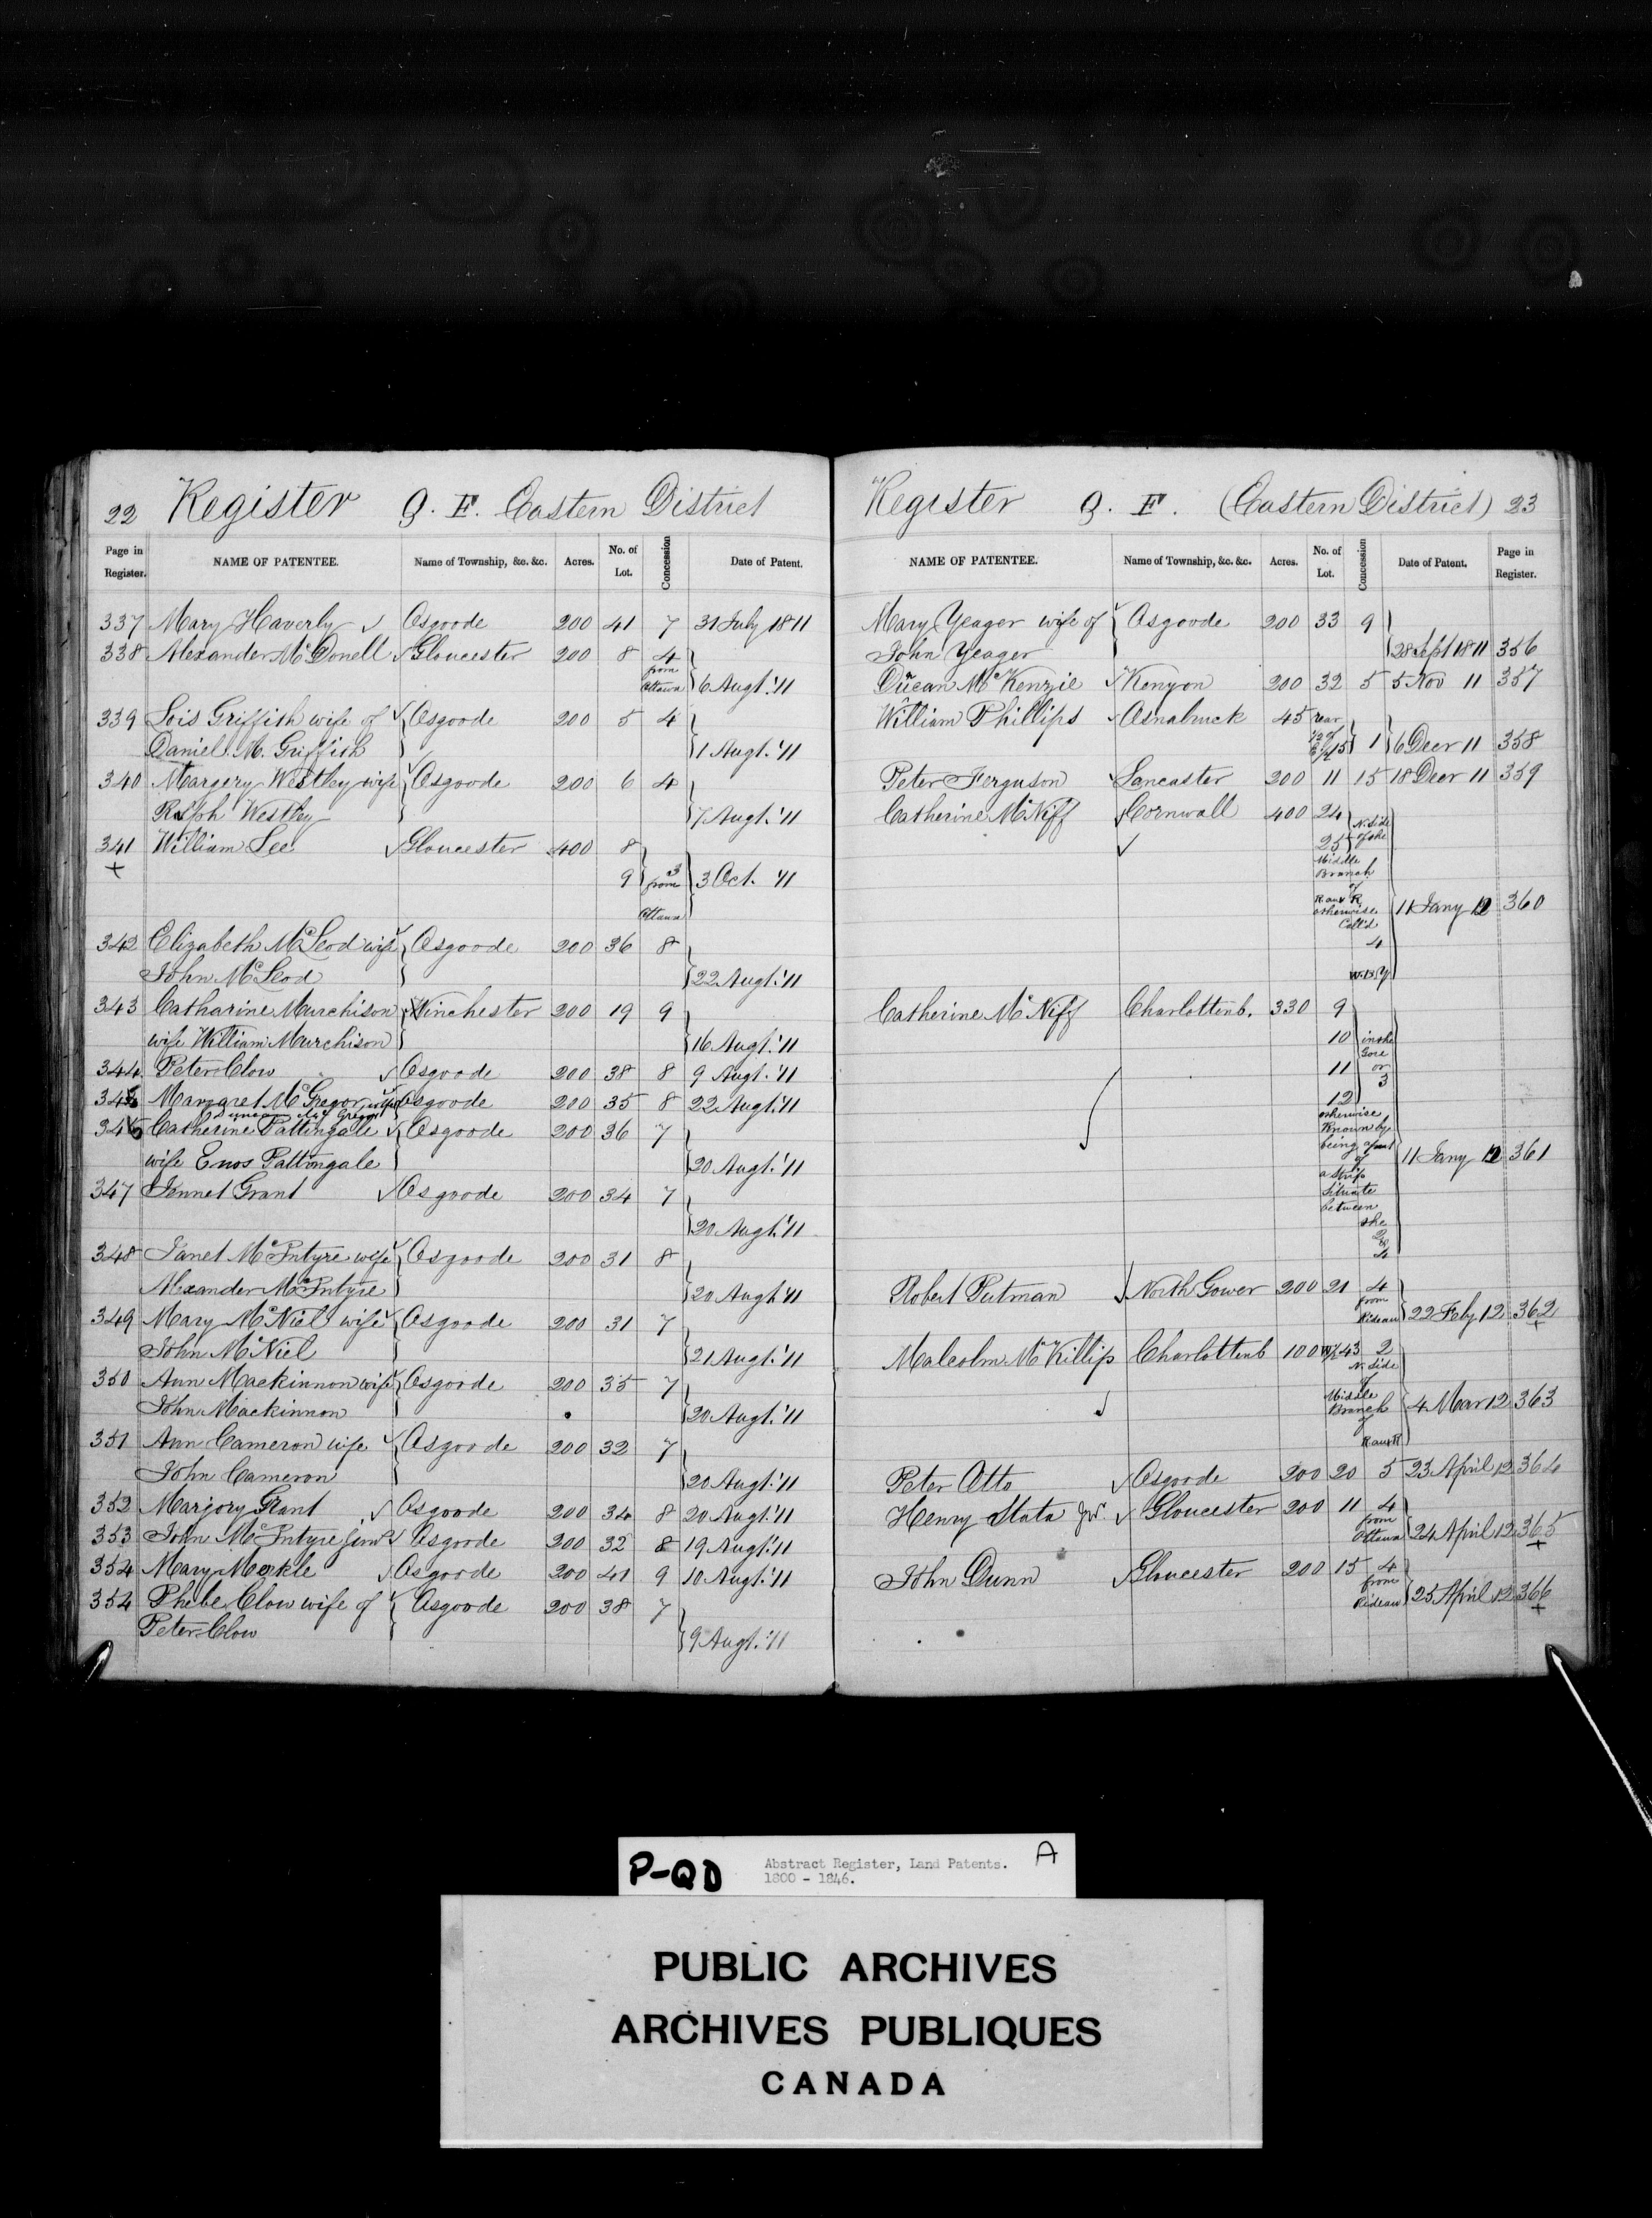 22 Register G. F. Eastern District
Page in Register. NAME OF PATENTEE. Name of Township, &c. &c. Acres. No. of Lot. Concession Date of Patent.
337 Mary Haverly Osgoode 200 41 7 31 July 1811
338 Alexander McDonell Gloucester 200 8 4
from
Ottawa 6 Augt. '11
339 Lois Griffith wife of Osgoode 200 5 4
Daniel M. Griffith 1 Augt. '11
340 Margery Westley wife Osgoode 200 6 4
Ralph Westley 7 Augt. '11
341 William Lee Gloucester 400 8
+ 9 3 from 3 Oct. '11
Ottawa
342 Elizabeth McLeod wife Osgoode 200 36 8
John McLeod 22 Augt. '11
343 Catharine Murchison Winchester 200 19 9
wife William Murchison 16 Augt. '11
344 Peter Clow Osgoode 200 38 8 9 Augt. '11
345 Margaret McGregor wife Osgoode 200 35 8 22 Augt. '11
Duncan McGregor
346 Catherine Pattingale Osgoode 200 36 7
wife Enos Pattingale 20 Augt. '11
347 Jennet Grant Osgoode 200 34 7
20 Augt. '11
348 Janet McIntyre wife Osgoode 200 31 8
Alexander McIntyre 20 Augt '11
349 Mary McNiel wife Osgoode 200 31 7
John McNiel 21 Augt. '11
350 Ann Mackinnon wife Osgoode 200 35 7
John Mackinnon 20 Augt. '11
351 Ann Cameron wife Osgoode 200 32 7
John Cameron 20 Augt. '11
352 Marjory Grant Osgoode 200 34 8 20 Augt. '11
353 John McIntyre Junr Osgoode 200 32 8 19 Augt. '11
354 Mary Merkle Osgoode 200 41 9 10 Augt. '11
354 Phebe Clow wife of Osgoode 200 38 7
Peter Clow 9 Augt. '11
Register G. F. (Eastern District) 23
NAME OF PATENTEE. Name of Township, &c. &c. Acres. No. of Lot. Concession Date of Patent. Page in Register.
Mary Yeager wife of Osgoode 200 33 9
John Yeager 28 Sept 1811 356
Ducan McKenzie Kenyon 200 32 5 5 Nov 11 357
William Phillips Osnabruck 45 rear
E½ 15 1 6 Decr 11 358
Peter Ferguson Lancaster 200 11 15 18 Decr 11 359
Catherine McNiff Cornwall 400 24 N. Side
25 of the
Middle
Branch
of
R aux R,
otherwise 11 Jany 12 360
Call'd
4
Catherine McNiff Charlottenb. 330 9
10 in the
Gore
11 or
3
12
otherwise
Known by
being a part
of 11 Jany 12 361
a strip
Situate
between
the
2
&
4
Robert Putman North Gower 200 21 4
from
Rideau 22 Feby 12 362
+
Malcolm McKillip Charlottenb 100 W½ 43 2
N. Side
of
Middle
Branch 4 Mar 12 363
of
R aux R
Peter Otto Osgoode 200 20 5 23 April 12 364
Henry Stata Jr. Gloucester 200 11 4
from
Ottawa 24 April 12 365
+
John Dunn Gloucester 200 15 4
from
Rideau 25 April 12 366
+
P-QD Abstract Register, Land Patents. A
1800 - 1846.
PUBLIC ARCHIVES
ARCHIVES PUBLIQUES
CANADA